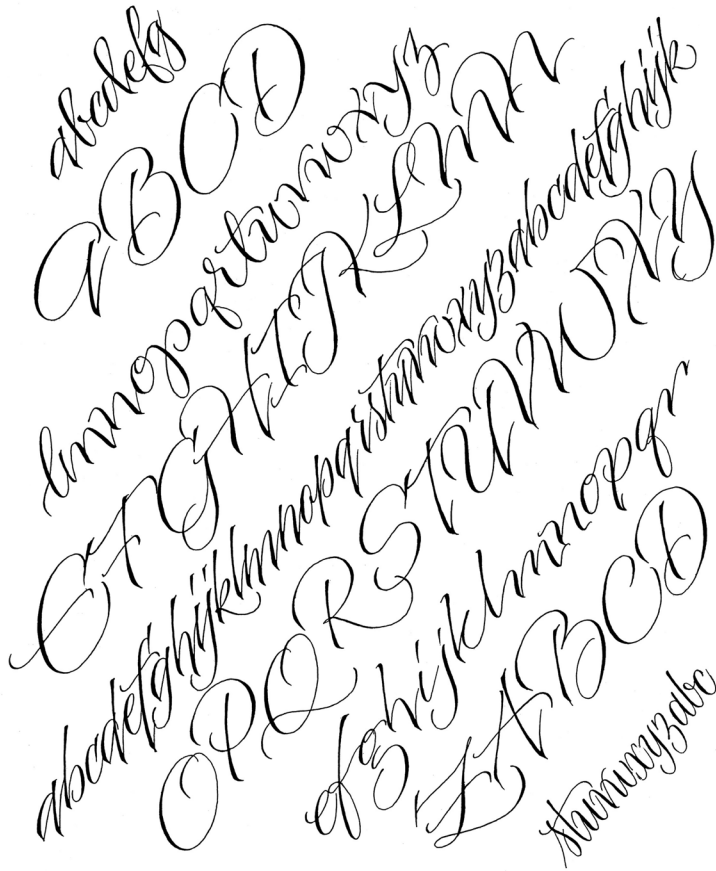 abcdefg
ABCD
lmnopqrtuvwxyz
EFGHIJKLMN
abcdefghijklmnopqrstuvwxyzabcdefghijk
OPQRSTUVWXY
efghijklmnopqr
ZABCD
stuvwxyzabc